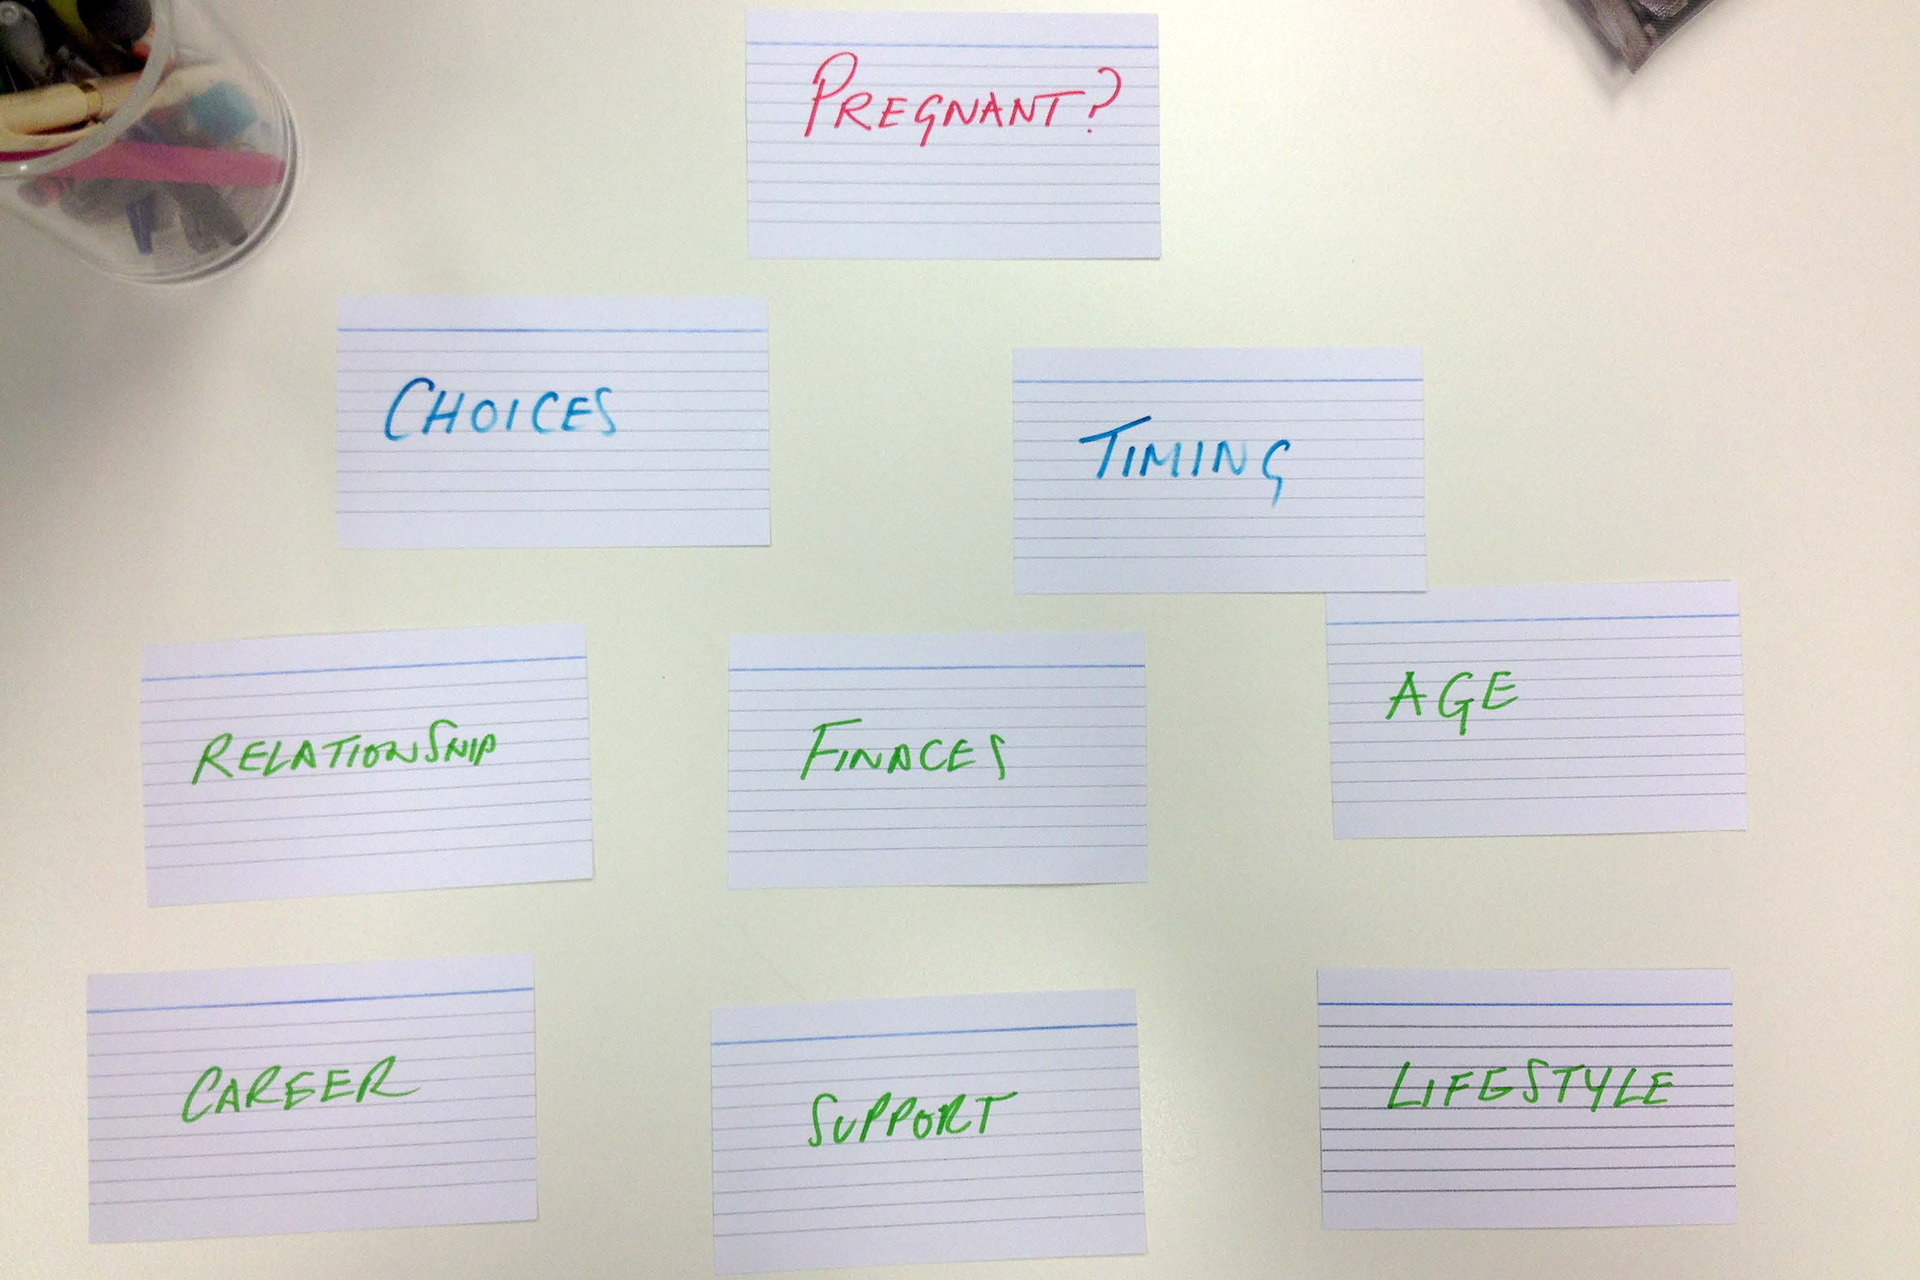 PREGNANT?
CHOICES
TIMING
RELATIONSHIP
FINACES
AGE
CAREER
SUPPORT
LIFESTYLE